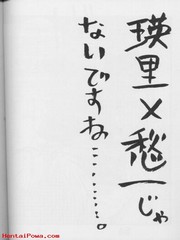 瑛里×愁一じゃ
ないですね………。
HentaiPowa.com